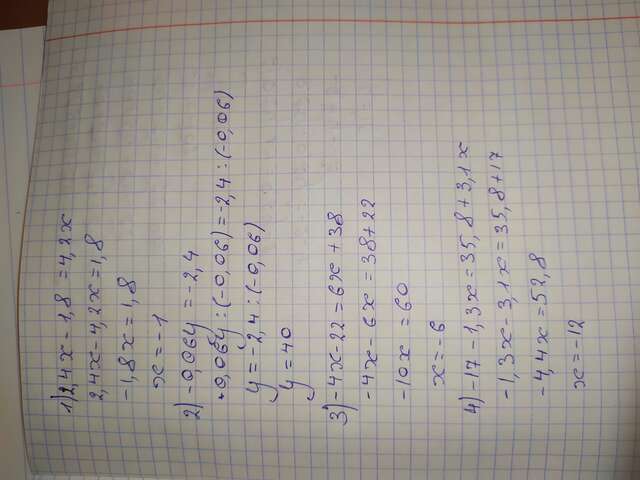 1) 2,4x - 1,8 = 4,2x
2,4x - 4,2x = 1,8
-1,8x = 1,8
x = -1
2) -0,06y = -2,4
-0,06y : (-0,06) = -2,4 : (-0,06)
y = -2,4 : (-0,06)
y = 40
3) -4x - 22 = 6x + 38
-4x - 6x = 38 + 22
-10x = 60
x = -6
4) -17 - 1,3x = 35,8 + 3,1x
-1,3x - 3,1x = 35,8 + 17
-4,4x = 52,8
x = -12